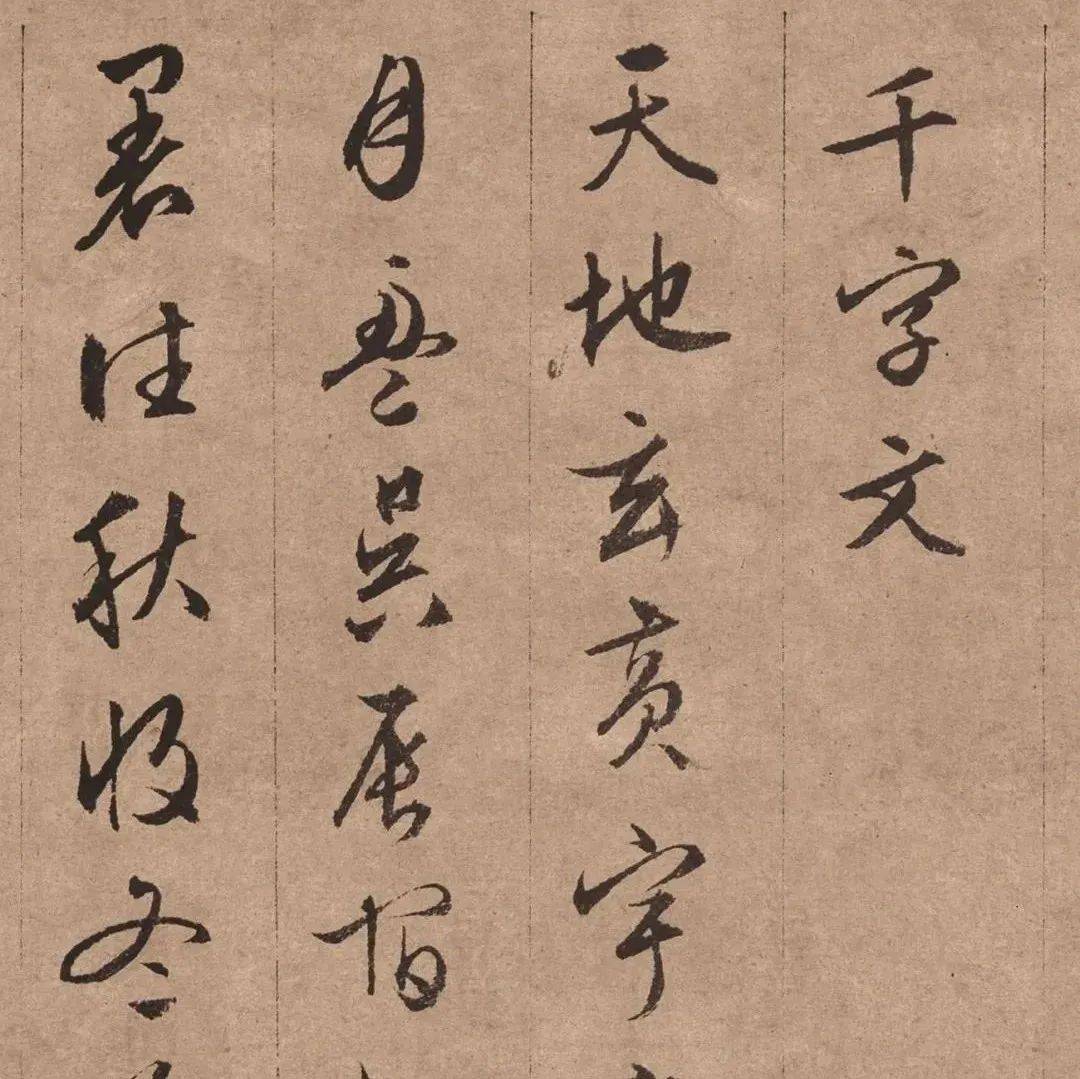 千字文
天地玄黄宇
月盈昃辰宿
暑往秋收冬